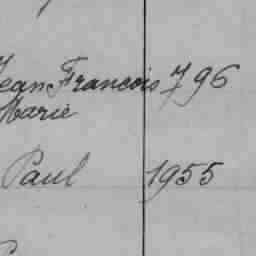 Jean Francois 796
Marie
Paul 1955